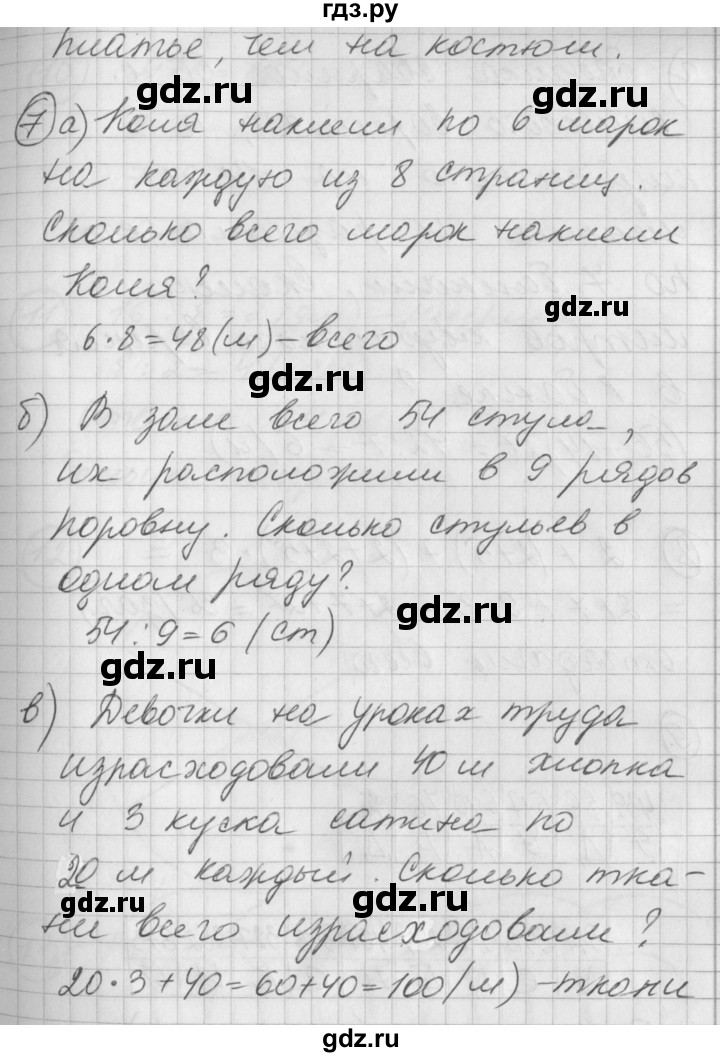 гдз.ру
платье, чем на костюм.
gdz.ru
gdz.ru
7 а) Коля наклеил по 6 марок
на каждую из 8 страниц.
Сколько всего марок наклеил
Коля?
gdz.ru
6·8=48(м)-всего
gdz.ru
б) В зале всего 54 стула,
их расположили в 9 рядов
поровну. Сколько стульев в
одном ряду?
gdz.ru
54:9=6(ст)
gdz.ru
в) Девочки на уроках труда
израсходовали 40 м хлопка
и 3 куска сатина по
20 м каждый. Сколько тка-
gdz.ru
ни всего израсходовали?
20·3+40=60+40=100(м)-ткани
gdz.ru